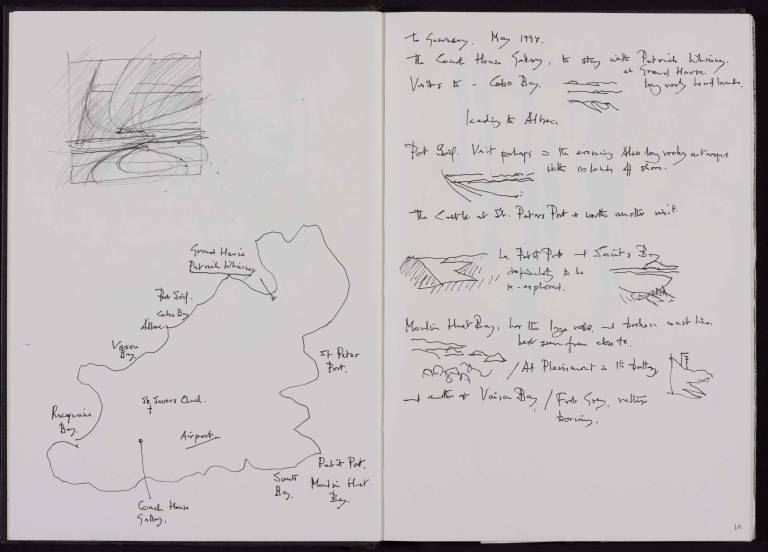 Grand Havre
Patrick Whinney
Port Soif.
Cobo Bay
Albec
Vazon
Bay
St Peter
Port.
Rocquaine
Bay.
St. Saviors Church.
Airport
Petit Port.
Moulin Huet
Bay.
Saints
Bay.
Coach House
Gallery.
to Guernsey. May 1994.
the Coach House Gallery, to stay with Patrick Whinney.
at Grand Havre.
Visits to - Cobo Bay. long rocky headlands.
leading to Albec.
Port Soif. Visit perhaps in the evening Also long rocky outcrops
with islands off shore.
the Castle at St. Peters Port is worth another visit.
Le Petit Port + Saints Bay
definitely to be
re-explored.
Moulin Huet Bay, has the large rocks, and broken coast line.
best seen from close to.
/ At Pleinmont is the battery
and another at Vazon Bay / Fort Grey, rather
boring.